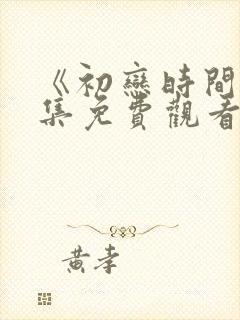 《初戀時間
集免費觀看
黃孝